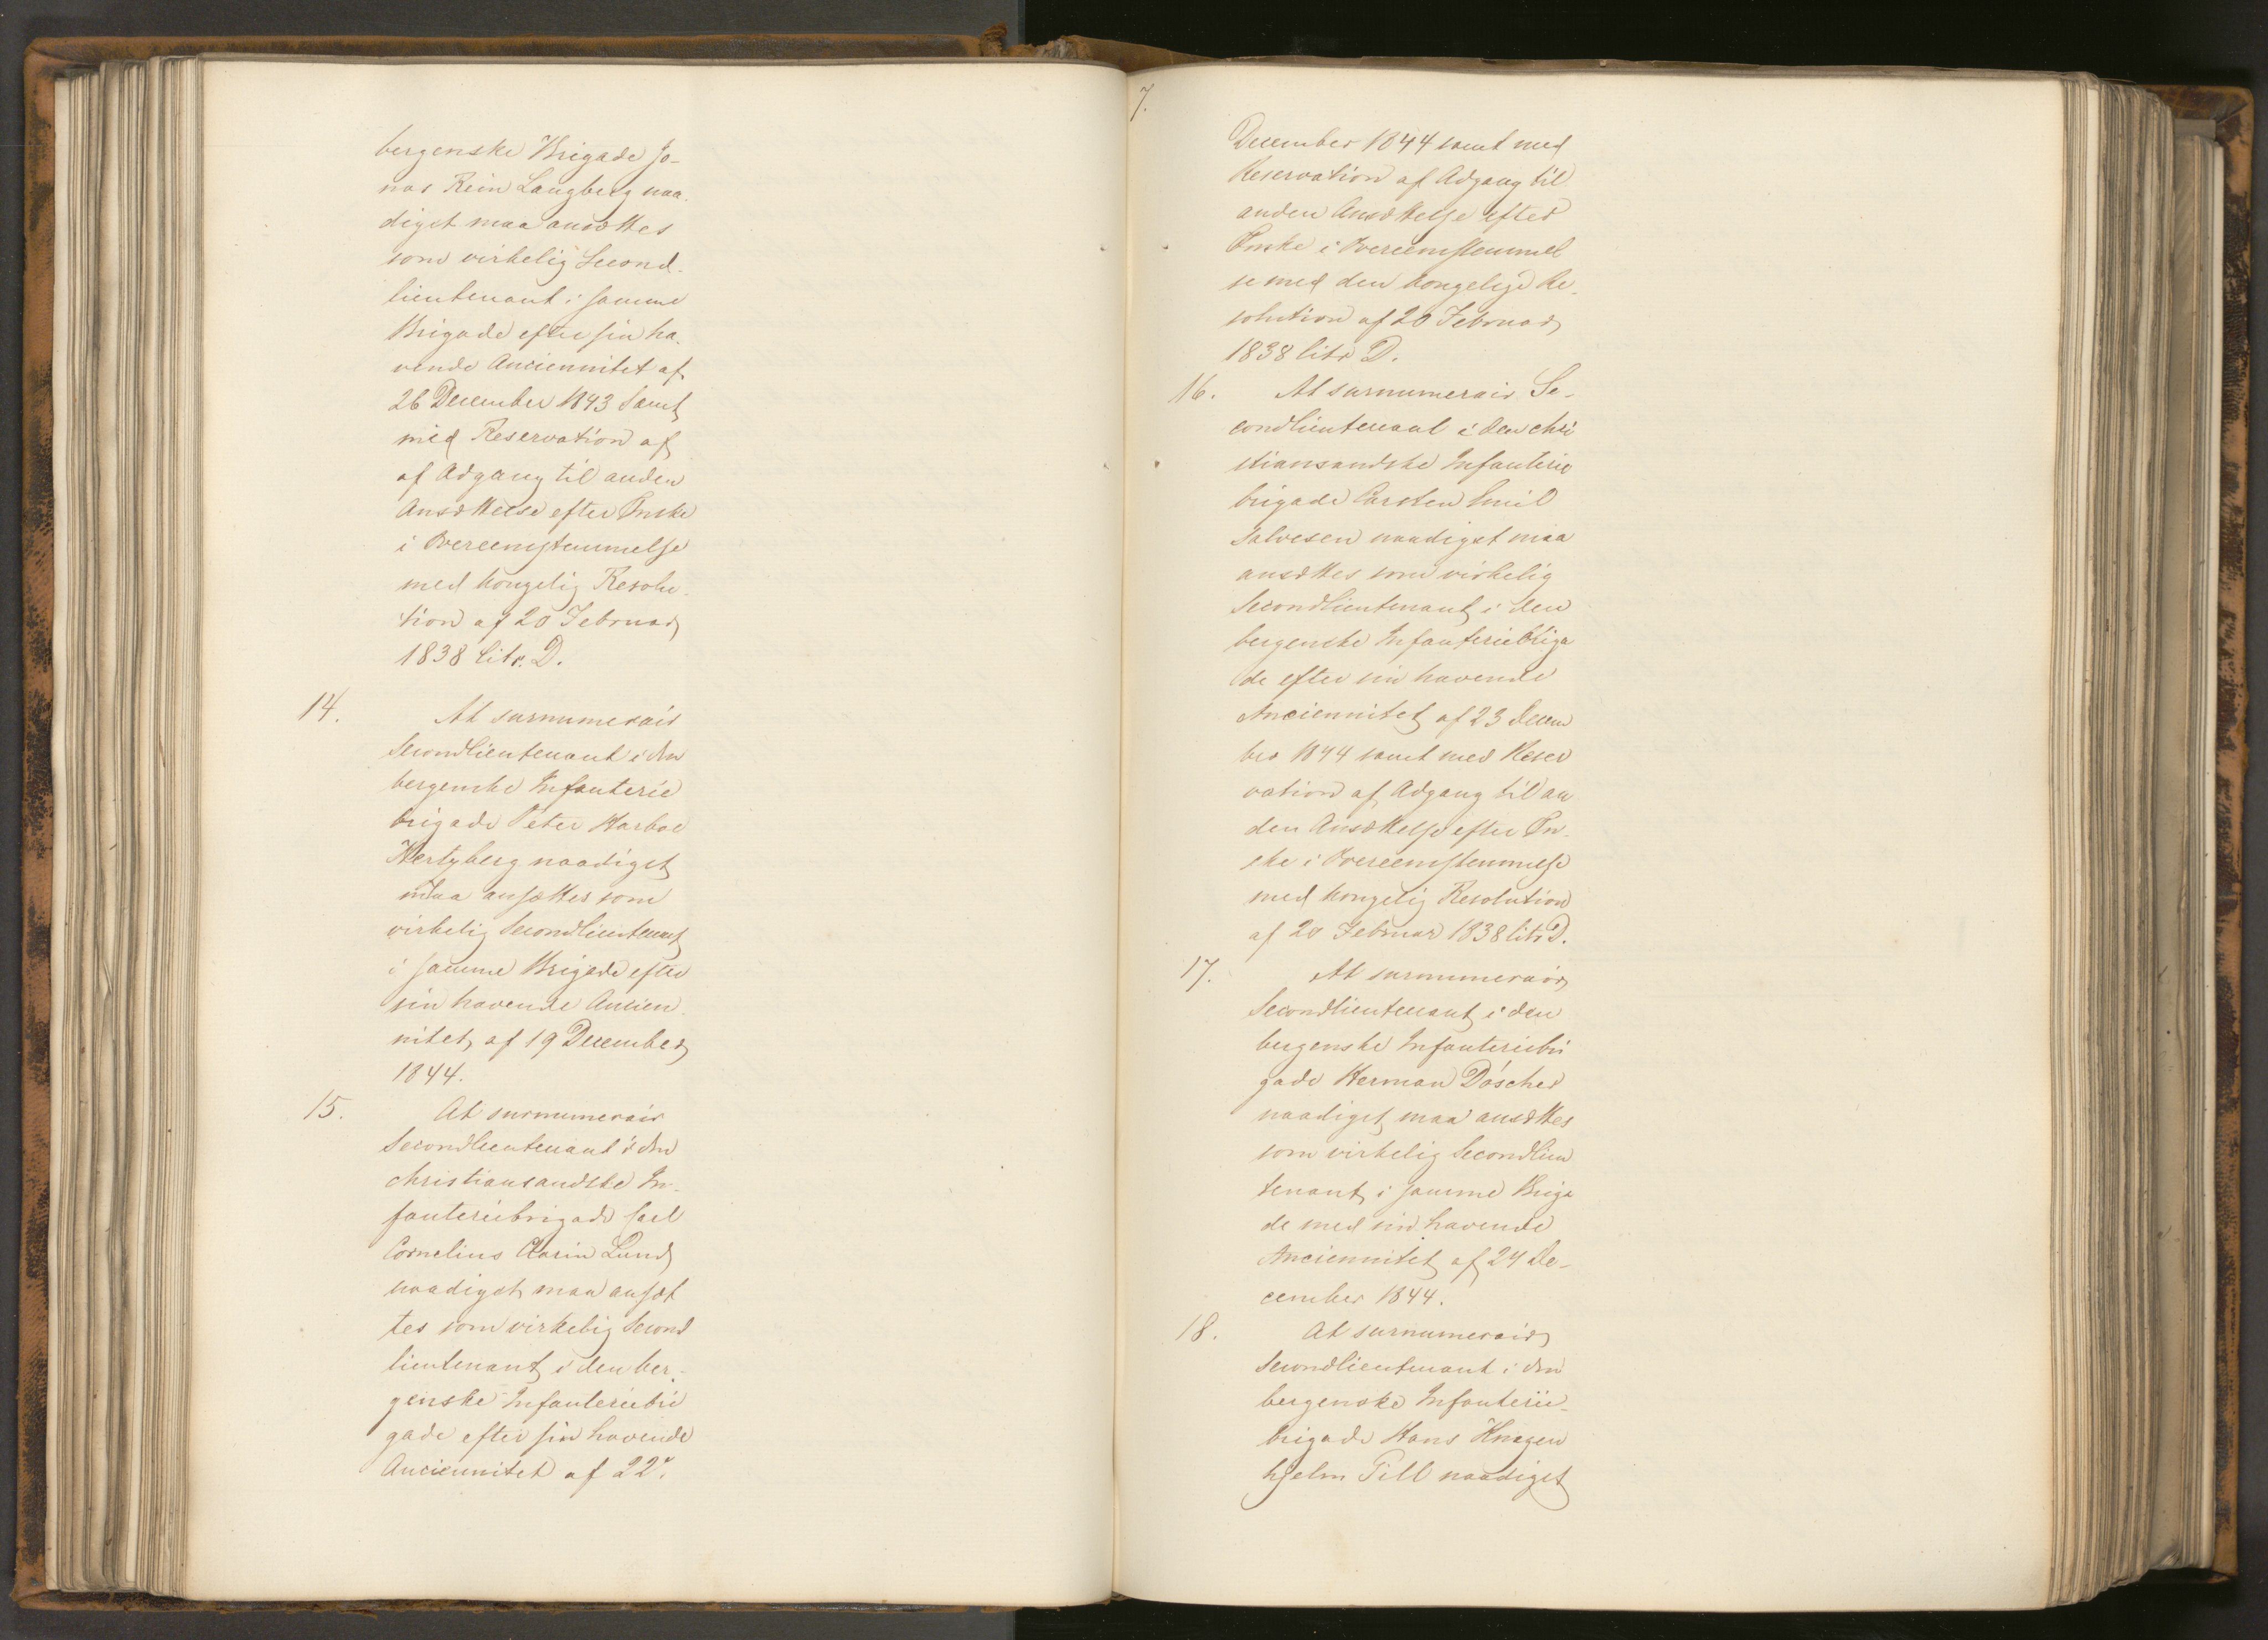 bergenske Brigade Jo-
nas Rein Langberg naa-
digst maa ansættes
som virkelig Second-
lieutenant i samme
Brigade efter sin ha-
vende Anciennitet af
26 December 1843 samt
med Reservation af
af Adgang til anden
Ansættelse efter Ønske
i Overeensstemmelse
med kongelig Resolu-
tion af 20 Februar
1838 litr. D.
14. At surnumerair
Secondlieutenant i den
bergenske Infanterie
brigade Peter Harboe
Hertzberg naadigst
maa ansættes som
virkelig Secondlieutenant
i samme Brigade efter
sin havende Ancien-
nitet af 19 December
1844.
15. At surnumerair
Secondlieutenant i den
christiansandske In-
fanteriebrigade Carl
Cornelius Lund
naadigst maa ansæt
tes som virkelig Second
lieutenant i den ber-
genske Infanteriebri
gade efter sin havende
Anciennitet af 22.
7.
December 1844 samt med
Reservation af Adgang til
anden Ansættelse efter
Ønske i Overeensstemmel
se med den kongelige Re-
solution af 20 Februar
1838 litr D.
16. At surnumerair Se-
condlieutenant i den chri
stiansandske Infanterie
brigade Carsten Emil
Salvesen naadigst maa
ansættes som virkelig
Secondlieutenant i den
bergenske Infanteriebriga
de efter sin havende
Anciennitet af 23 Decem
ber 1844 samt med Reser
vation af Adgang til an
den Ansættelse efter Øn-
ske i Overeensstemmelse
med kongelig Resolution
af 20 Februar 1838 litr D.
17. At surnumerair
Secondlieutenant i den
bergenske Infanteriebri
gade Herman Döscher
naadigst maa ansættes
som virkelig Secondlieu
tenant i samme Briga
de med sin havende
Anciennitet af 24 De-
cember 1844.
18. At surnumerair
Secondlieutenant i den
bergenske Infanterie-
brigade Hans Knagen
hjelm Pill naadigst